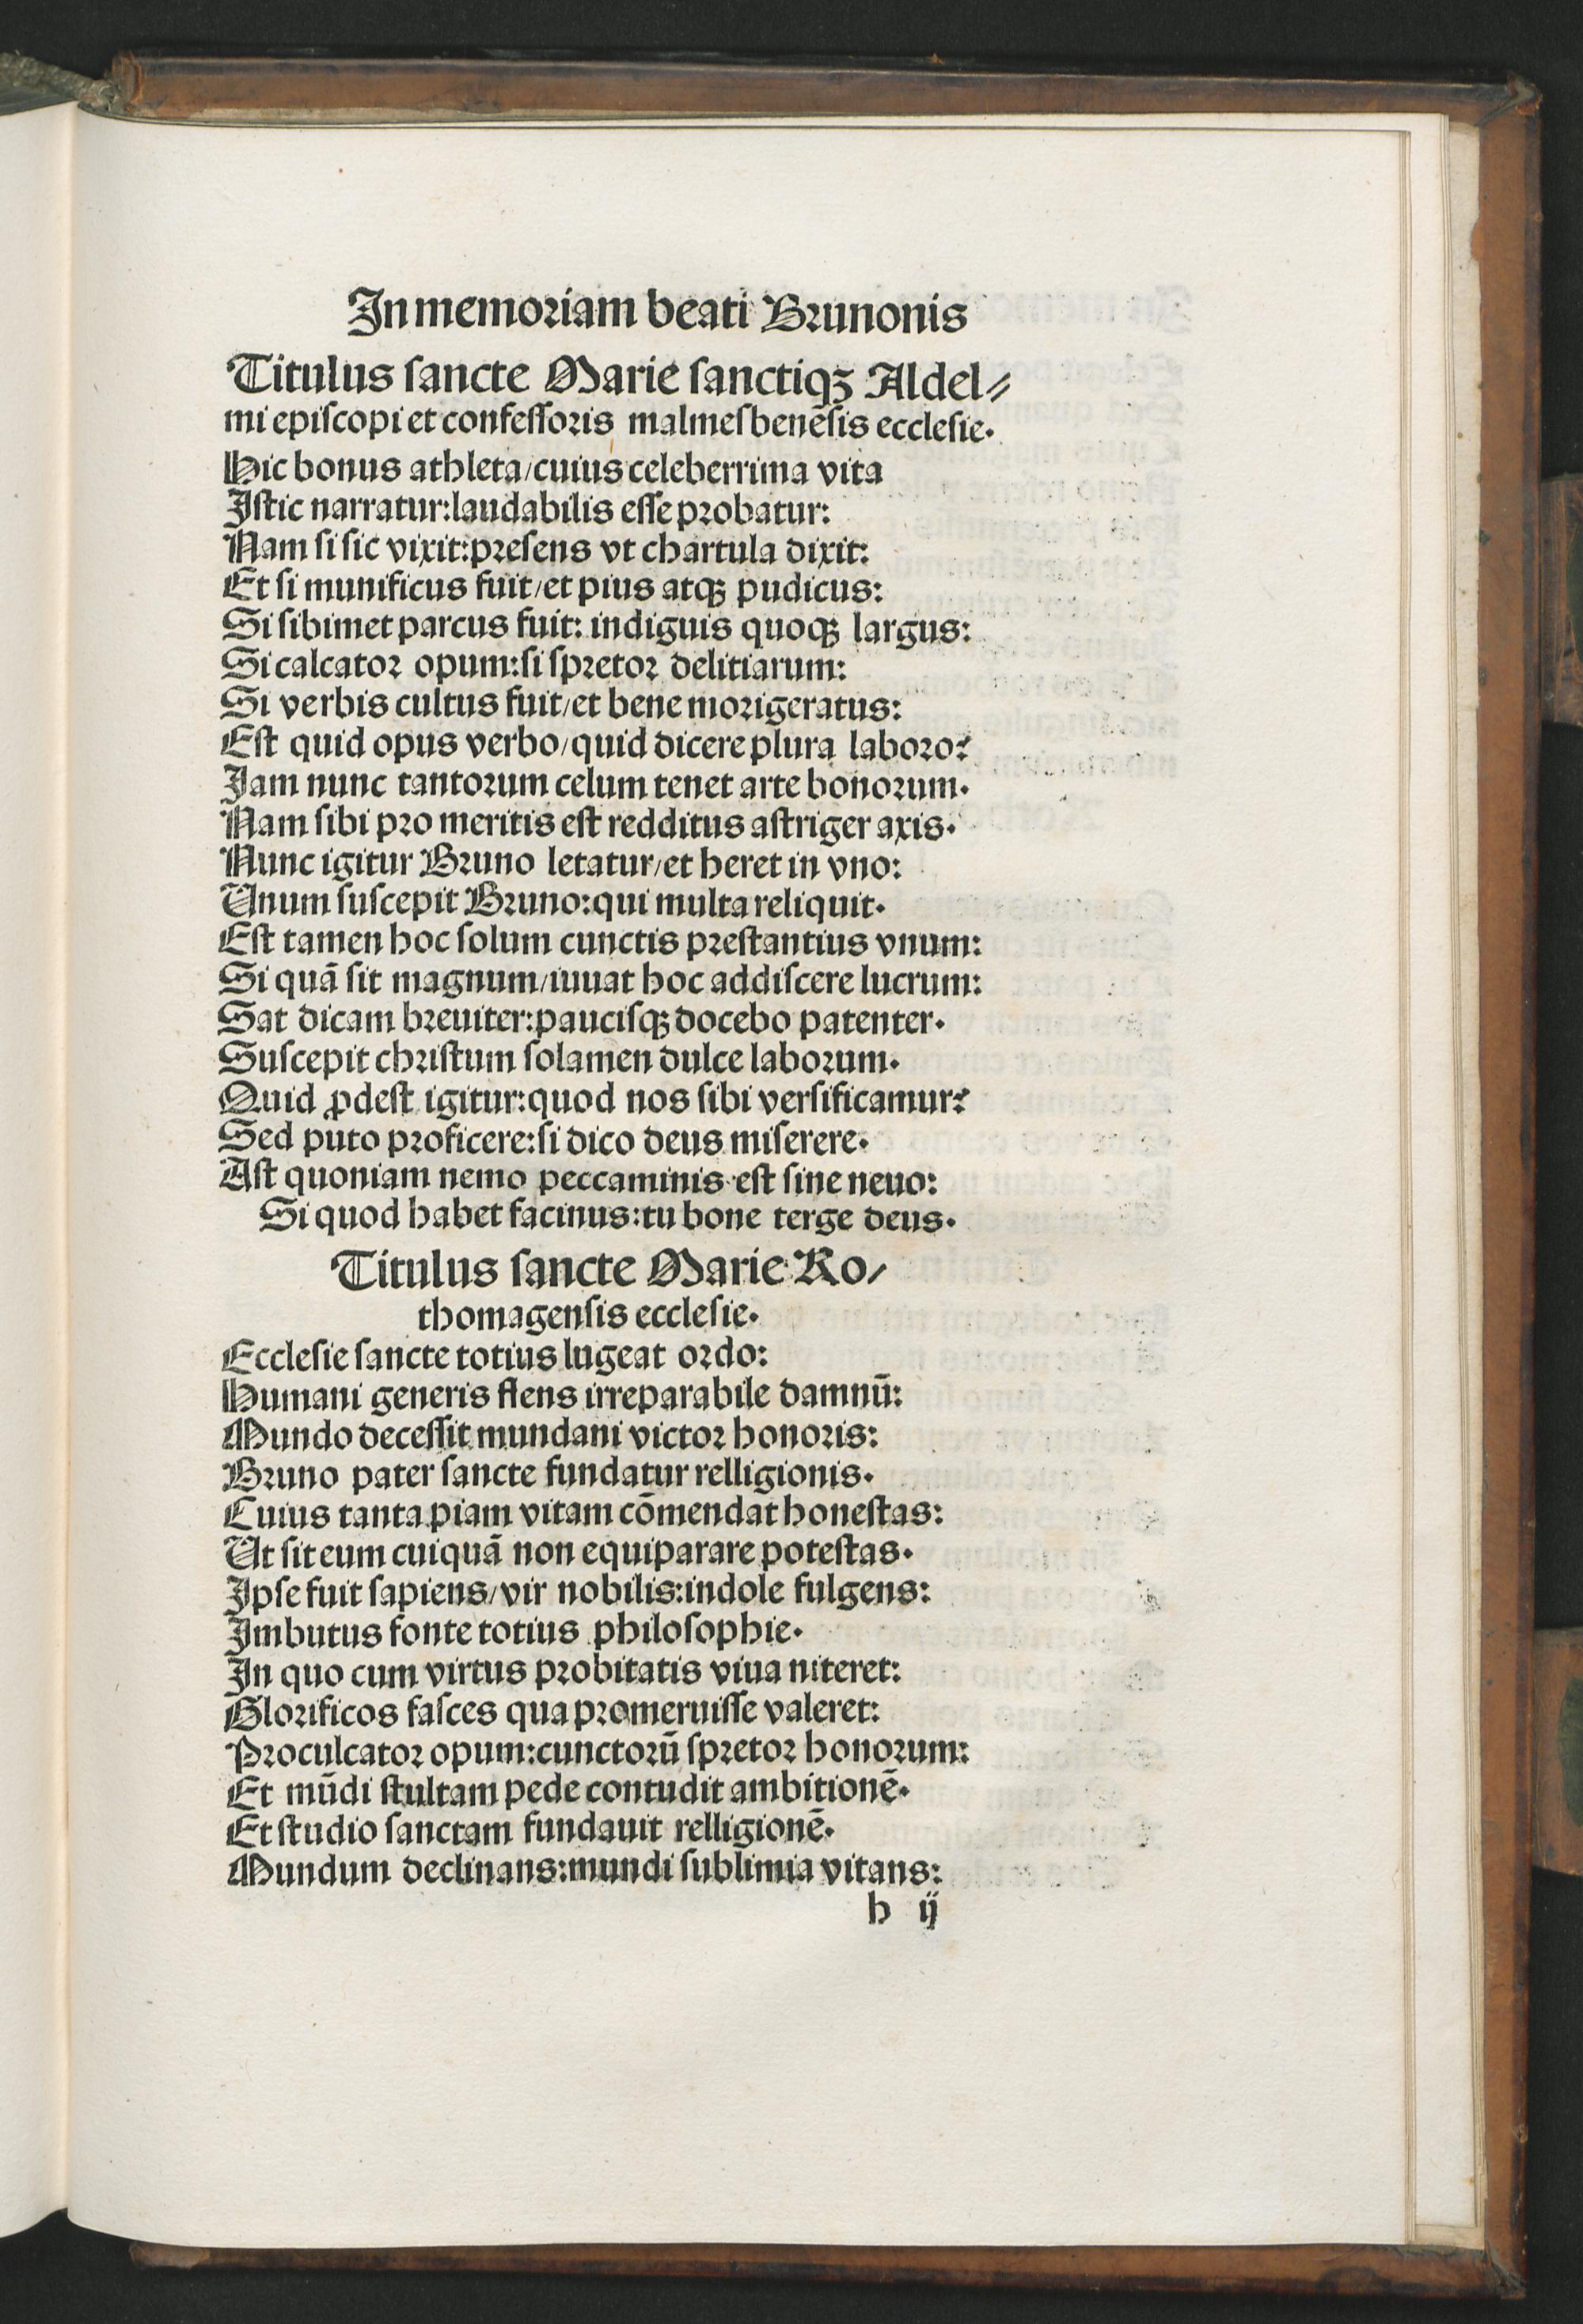 In memoriam beati Brunonis
Titulus sancte Marie sanctiqꝫ Aldel⸗
mi episcopi et confessoris malmesbenēsis ecclesie.
Hic bonus athleta/cuius celeberrima vita
Istic narratur:laudabilis esse probatur:
Nam si sic vixit:presens vt chartula dixit:
Et si munificus fuit/et pius atqꝫ pudicus:
Si sibimet parcus fuit: indiguis quoqꝫ largus:
Si calcator opum:si spretor delitiarum:
Si verbis cultus fuit/et bene morigeratus:
Est quid opus verbo/quid dicere plura laboro?
Iam nunc tantorum celum tenet arte bonorum.
Nam sibi pro meritis est redditus astriger axis.
Nunc igitur Bruno letatur/et heret in vno:
Unum suscepit Bruno:qui multa reliquit.
Est tamen hoc solum cunctis prestantius vnum:
Si quā sit magnum/iuuat hoc addiscere lucrum:
Sat dicam breuiter:paucisqꝫ docebo patenter.
Suscepit christum solamen dulce laborum.
Quid ꝓdest igitur:quod nos sibi versificamur?
Sed puto proficere:si dico deus miserere.
Ast quoniam nemo peccaminis est sine neuo:
Si quod habet facinus:tu bone terge deus.
Titulus sancte Marie Ro/
thomagensis ecclesie.
Ecclesie sancte totius lugeat ordo:
Humani generis flens irreparabile damnū:
Mundo decessit mundani victor honoris:
Bruno pater sancte fundatur relligionis.
Cuius tanta piam vitam cōmendat honestas:
Ut sit eum cuiquā non equiparare potestas.
Ipse fuit sapiens/vir nobilis:indole fulgens:
Imbutus fonte totius philosophie.
In quo cum virtus probitatis viua niteret:
Glorificos fasces qua promeruisse valeret:
Proculcator opum:cunctorū spretor honorum:
Et mūdi stultam pede contudit ambitionē.
Et studio sanctam fundauit relligionē.
Mundum declinans:mundi sublimia vitans:
h ij